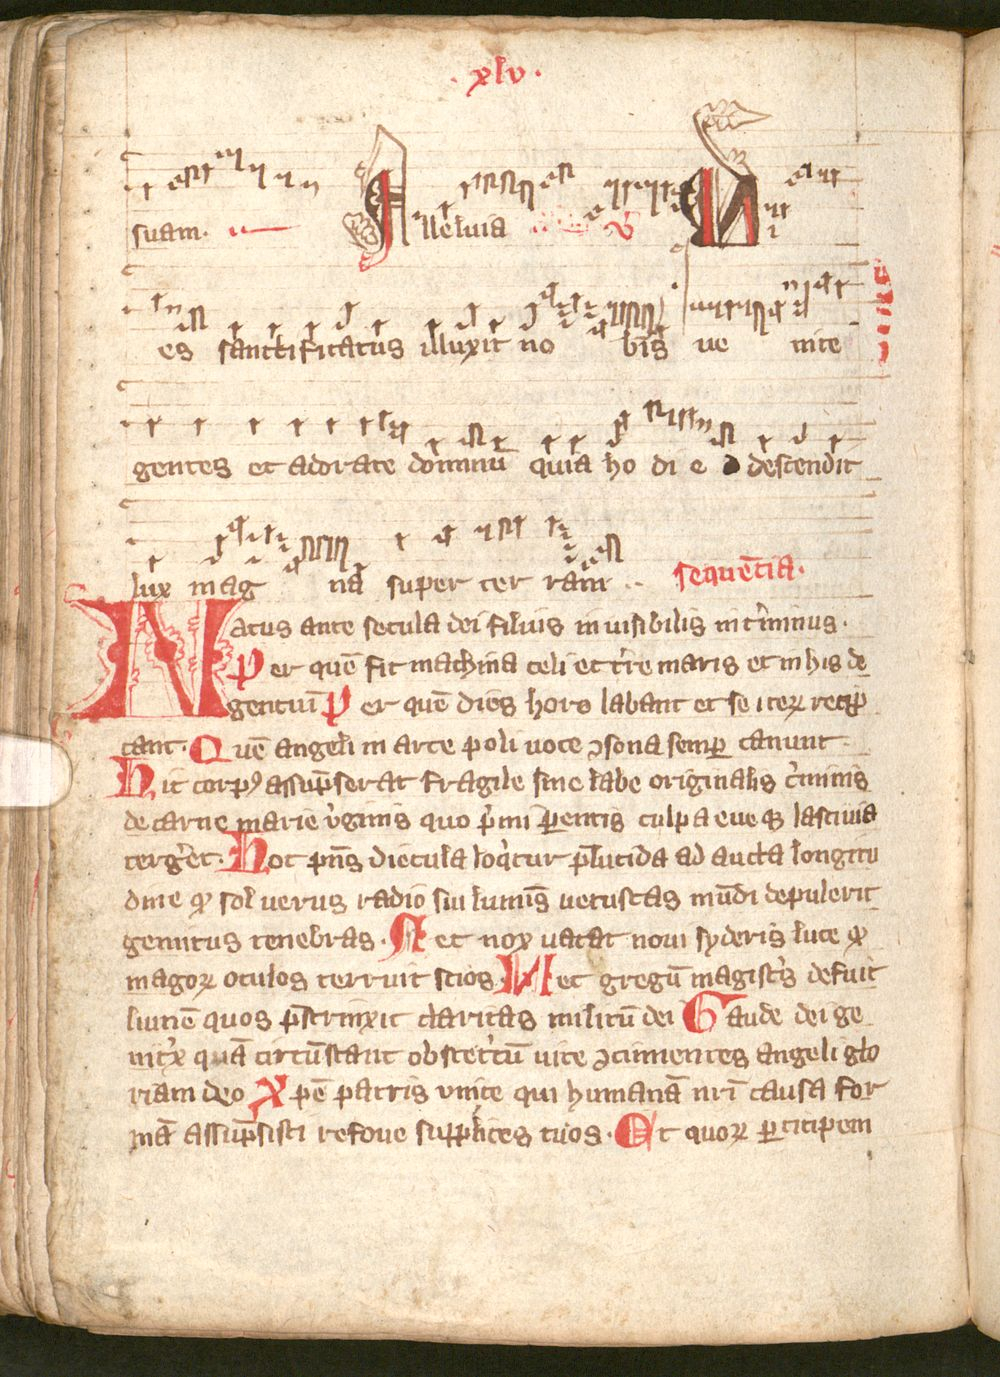 · xlv ·
suam. Alleluia V Di
es sanctificatus illuxit no bis ve nite
gentes et adorate dominū quia ho di e descendit
lux mag nā super ter ram .. sequētia.
Natus ante secula dei filius invisibilis intminus.
Per quē fit machina celi et tre maris et in his de
gentiū Per quē dies hore labant et se iterꝝ recip
tant. Quē angeli in arce poli voce ↄsona semp canunt.
Hic corp assūpserat fragile sine labe originalis cminis
de carne marie vginis quo pmi parentis culpa eve qꝫ lascivia
tergeret. Hoc pns diecula loqtur plucida ad aucta longitu
dine qꝫ sol verus radio sui luminis vetustas mūdi depulerit
genitus tenebras. Nec nox vacat novi syderis luce qꝫ
magorꝝ oculos terruit scios. Nec gregū magistris defuit
lumē quos pstrinxit claritas militū dei Gaude dei ge
nitx quā circūstant obstetcū vice ↄcinentes angeli glo
riam deo Xpe patris unice qui humanā nri causa for
mā assūpsisti refove supplices tuos. Et quorꝝ pticipem